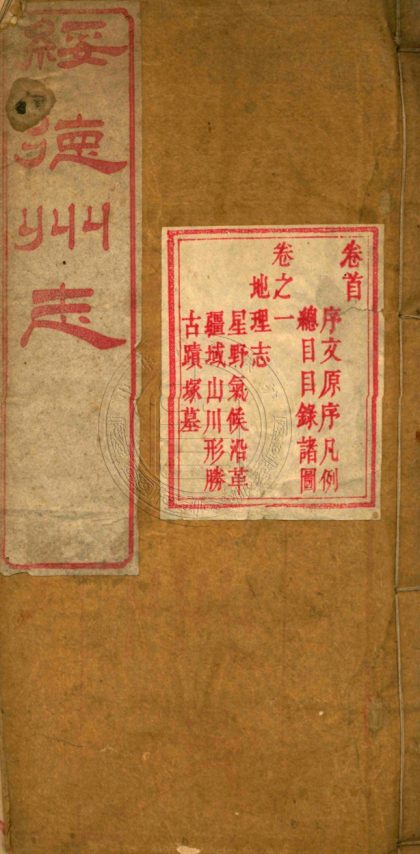 綏德州志
卷首
序文原序凡例
總目目錄諸圖
卷之一
地理志
星野氣候沿革
疆域山川形勝
古蹟塚墓